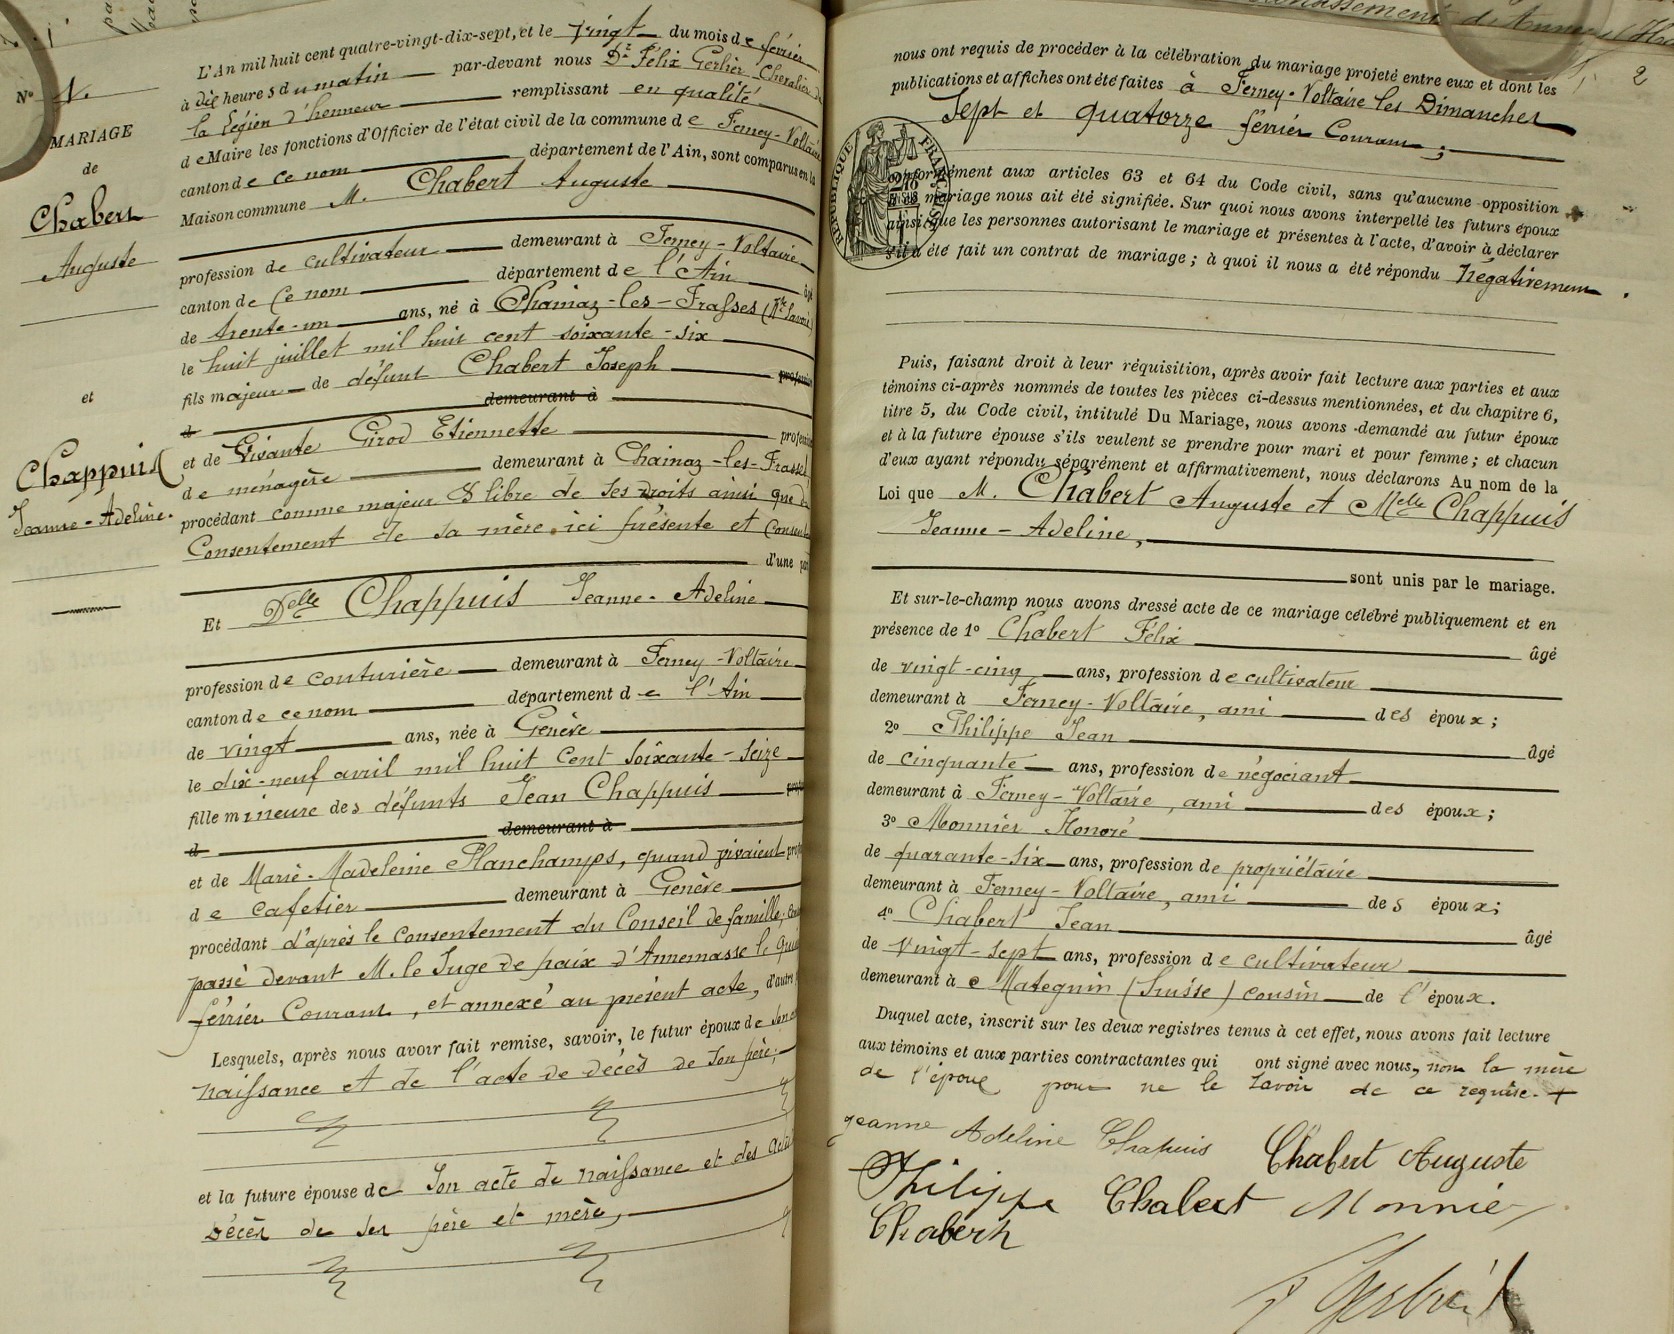 L'An mil huit cent quatre-vingt-dix-sept, et le vingt du mois de février
à dix heures du matin par-devant nous Dr Félix Gerlier Chevalier de
la Légion d'honneur remplissant en qualité
de Maire les fonctions d'Officier de l'état civil de la commune de Ferney-Voltaire
canton de ce nom département de l'Ain, sont comparus en la
Maison commune M. Chabert Auguste
profession de cultivateur demeurant à Ferney-Voltaire
canton de ce nom département de l'Ain
de trente-un ans, né à Chainaz-les-Frasses (Hte Savoie)
le huit juillet mil huit cent soixante-six
fils majeur de défunt Chabert Joseph profession
d demeurant à
et de Vivante Girod Etiennette profession
de ménagère demeurant à Chainaz-les-Frasses
procédant comme majeur & libre de ses droits ainsi que du
Consentement de sa mère ici présente et
d'une part
Et Delle Chappuis Jeanne-Adeline
profession de couturière demeurant à Ferney-Voltaire
canton de ce nom département de l'Ain
de vingt ans, née à Genève
le dix-neuf avril mil huit cent soixante-seize
fille mineure des défunts Jean Chappuis
d demeurant à
et de Marie-Madeleine Planchamps, quand vivaient
de cafetier demeurant à Genève
procédant d'après le consentement du Conseil de famille,
passé devant M. le Juge de paix d'Annemasse le
février Courant, et annexé au présent acte, d'autre
Lesquels, après nous avoir fait remise, savoir, le futur époux de son
naissance et de l'acte de décès de son père;
et la future épouse de Son acte de naissance et des
décès de ses père et mère,
No 1.
MARIAGE
de
Chabert
Auguste
et
Chappuis
Jeanne-Adeline.
2
nous ont requis de procéder à la célébration du mariage projeté entre eux et dont les
publications et affiches ont été faites à Ferney-Voltaire les Dimanches
Sept et quatorze février Courant;
RÉPUBLIQUE FRANÇAISE
conformément aux articles 63 et 64 du Code civil, sans qu'aucune opposition
mariage nous ait été signifiée. Sur quoi nous avons interpellé les futurs époux
ainsi que les personnes autorisant le mariage et présentes à l'acte, d'avoir à déclarer
s'il a été fait un contrat de mariage; à quoi il nous a été répondu négativement.
Puis, faisant droit à leur réquisition, après avoir fait lecture aux parties et aux
témoins ci-après nommés de toutes les pièces ci-dessus mentionnées, et du chapitre 6,
titre 5, du Code civil, intitulé Du Mariage, nous avons demandé au futur époux
et à la future épouse s'ils veulent se prendre pour mari et pour femme; et chacun
d'eux ayant répondu séparément et affirmativement, nous déclarons Au nom de la
Loi que M. Chabert Auguste et Melle Chappuis
Jeanne-Adeline,
sont unis par le mariage.
Et sur-le-champ nous avons dressé acte de ce mariage célébré publiquement et en
présence de 1o Chabert Félix âgé
de vingt-cinq ans, profession de cultivateur
demeurant à Ferney-Voltaire, ami des époux;
2o Philippe Jean âgé
de cinquante ans, profession de négociant
demeurant à Ferney-Voltaire, ami des époux;
3o Monnier Honoré
de quarante-six ans, profession de propriétaire
demeurant à Ferney-Voltaire, ami des époux;
4o Chabert Jean âgé
de vingt-sept ans, profession de cultivateur
demeurant à Mategnin (Suisse) cousin de l'époux.
Duquel acte, inscrit sur les deux registres tenus à cet effet, nous avons fait lecture
aux témoins et aux parties contractantes qui ont signé avec nous, non la mère
de l'époux pour ne le savoir de ce requise.
Jeanne Adeline Chapuis Chabert Auguste
Philippe Chabert Monnier
Chabert